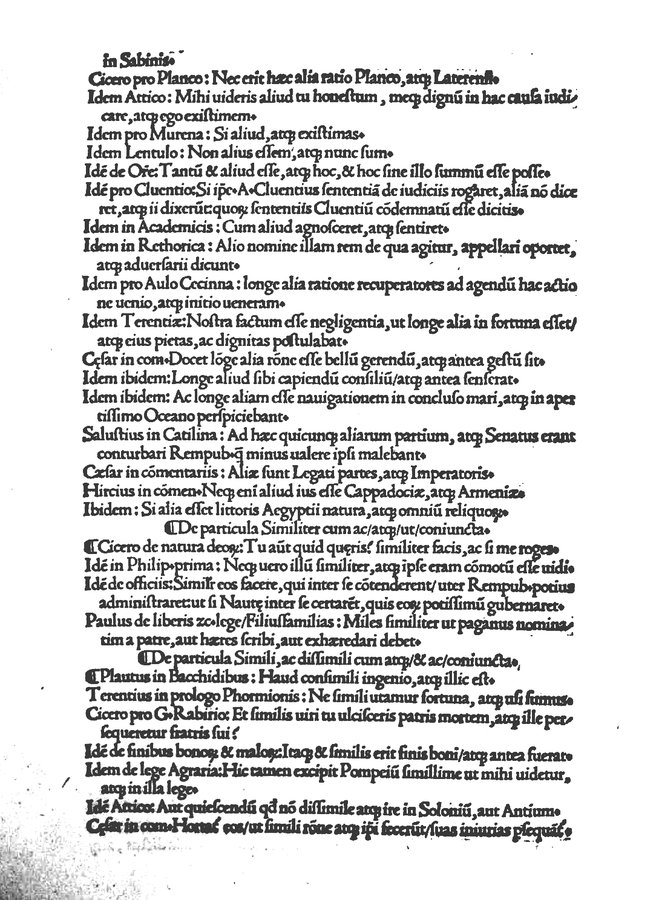 in Sabinis.
Cicero pro Planco: Nec erit hæc alia ratio Planco, atqꝫ Laterensi.
Idem Attico: Mihi uideris aliud tu honestum, meqꝫ dignũ in hac causa iudi/
care, atqꝫ ego existimem.
Idem pro Murena: Si aliud, atqꝫ existimas.
Idem Lentulo: Non alius essem, atqꝫ nunc sum.
Idẽ de Or̃e: Tantũ & aliud esse, atqꝫ hoc, & hoc sine illo summũ esse posse.
Idẽ pro Cluentio: Si ip̃e. A. Cluentius sententiã de iudiciis rogaret, aliã nõ dice
ret, atqꝫ ii dixerũt: quoꝝ sententiis Cluentiũ cõdemnatũ esse dicitis.
Idem in Academicis: Cum aliud agnosceret, atqꝫ sentiret.
Idem in Rethorica: Alio nomine illam rem de qua agitur, appellari oportet,
atqꝫ aduersarii dicunt.
Idem pro Aulo Cecinna: longe alia ratione recuperatores ad agendũ hac actio
ne uenio, atqꝫ initio ueneram.
Idem Terentiæ: Nostra factum esse negligentia, ut longe alia in fortuna esset/
atqꝫ eius pietas, ac dignitas postulabat.
Cęsar in com. Docet lõge alia rõne esse bellũ gerendũ, atqꝫ antea gestũ sit.
Idem ibidem: Longe aliud sibi capiendũ consiliũ/atqꝫ antea senserat.
Idem ibidem: Ac longe aliam esse nauigationem in concluso mari, atqꝫ in aper
tissimo Oceano perspiciebant.
Salustius in Catilina: Ad hæc quicunqꝫ aliarum partium, atqꝫ Senatus erant
conturbari Rempub. q̃ minus ualere ipsi malebant.
Cæsar in cõmentariis: Aliæ sunt Legati partes, atqꝫ Imperatoris.
Hircius in cõmen. Neqꝫ eni aliud ius esse Cappadociæ, atqꝫ Armeniæ.
Ibidem: Si alia esset littoris Aegyptii natura, atqꝫ omniũ reliquoꝝ.
¶De particula Similiter cum ac/atqꝫ/ut/coniuncta.
¶Cicero de natura deoꝝ: Tu aũt quid quęris? similiter facis, ac si me roges.
Idẽ in Philip. prima: Neqꝫ uero illũ similiter, atqꝫ ipse eram cõmotũ esse uidi.
Idẽ de officiis: Simil̃r eos facere, qui inter se cõtenderent/ uter Rempub. potius
administraret: ut si Nautę inter se certarẽt, quis eoꝝ potissimũ gubernaret.
Paulus de liberis ⁊c. lege/Filiusfamilias: Miles similiter ut paganus nomina/
tim a patre, aut hæres scribi, aut exhæredari debet.
¶De particula Simili, ac dissimili cum atqꝫ/& ac/coniuncta.
¶Plautus in Bacchidibus: Haud consimili ingenio, atqꝫ illic est.
Terentius in prologo Phormionis: Ne simili utamur fortuna, atqꝫ usi sumus.
Cicero pro G. Rabirio: Et similis uiri tu ulcisceris patris mortem, atqꝫ ille per/
sequeretur fratris sui?
Idẽ de finibus bonoꝝ & maloꝝ: Itaqꝫ & similis erit finis boni/atqꝫ antea fuerat.
Idem de lege Agraria: Hic tamen excipit Pompeiũ simillime ut mihi uidetur,
atqꝫ in illa lege.
Idẽ Attico: Aut quiescendũ qđ nõ dissimile atqꝫ ire in Soloniũ, aut Antium.
Cęsar in com. eos/ut simili rõne atqꝫ ip̃i fecerũt/suas iniurias